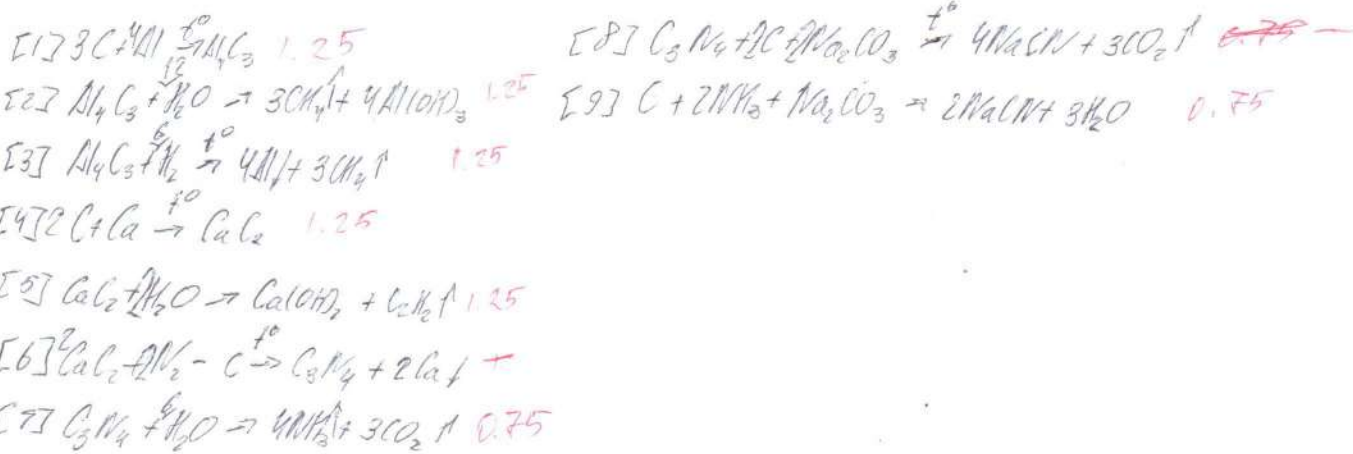 [1] 3C + 4Al t°→ Al₄C₃ 1.25
[2] Al₄C₃ + 12H₂O → 3CH₄↑ + 4Al(OH)₃ 1.25
[3] Al₄C₃ + 6H₂ t°→ 4Al↓ + 3CH₄↑ 1.25
[4] 2C + Ca t°→ CaC₂ 1.25
[5] CaC₂ + 2H₂O → Ca(OH)₂ + C₂H₂↑ 1.25
[6] 2CaC₂ + 2N₂ - C t°→ C₃N₄ + 2Ca↓ –
[7] C₃N₄ + 6H₂O → 4NH₃↑ + 3CO₂↑ 0.75
[8] C₃N₄ + 2C + 2Na₂CO₃ t°→ 4NaCN + 3CO₂↑ 0.75 –
[9] C + 2NH₃ + Na₂CO₃ → 2NaCN + 3H₂O 0.75